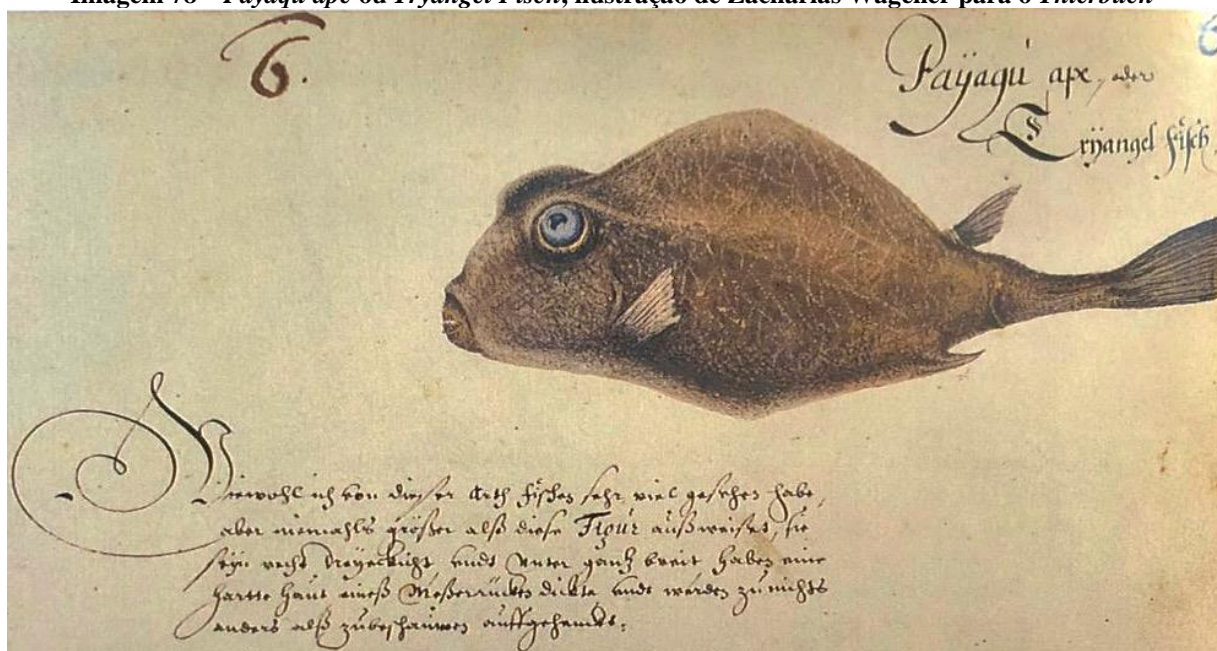 Imagem 78 - Payaqu ape ou Tryangel Fisch, ilustração de Zacharias Wagener para o Thierbuch
6.
6
Paÿagú ape, oder
Trÿangel Fisch.
Wiewohl ich von dieser Arth fischen sehr viel gesehen habe,
aber niemahls größer alß diese Figur außweiset, sie
seÿn recht dreÿeckicht undt unter gantz breit haben eine
hartte haut eineß Meßerrücken dicke undt werden zu nichts
anders alß zubeschauwen auffgehenckt.